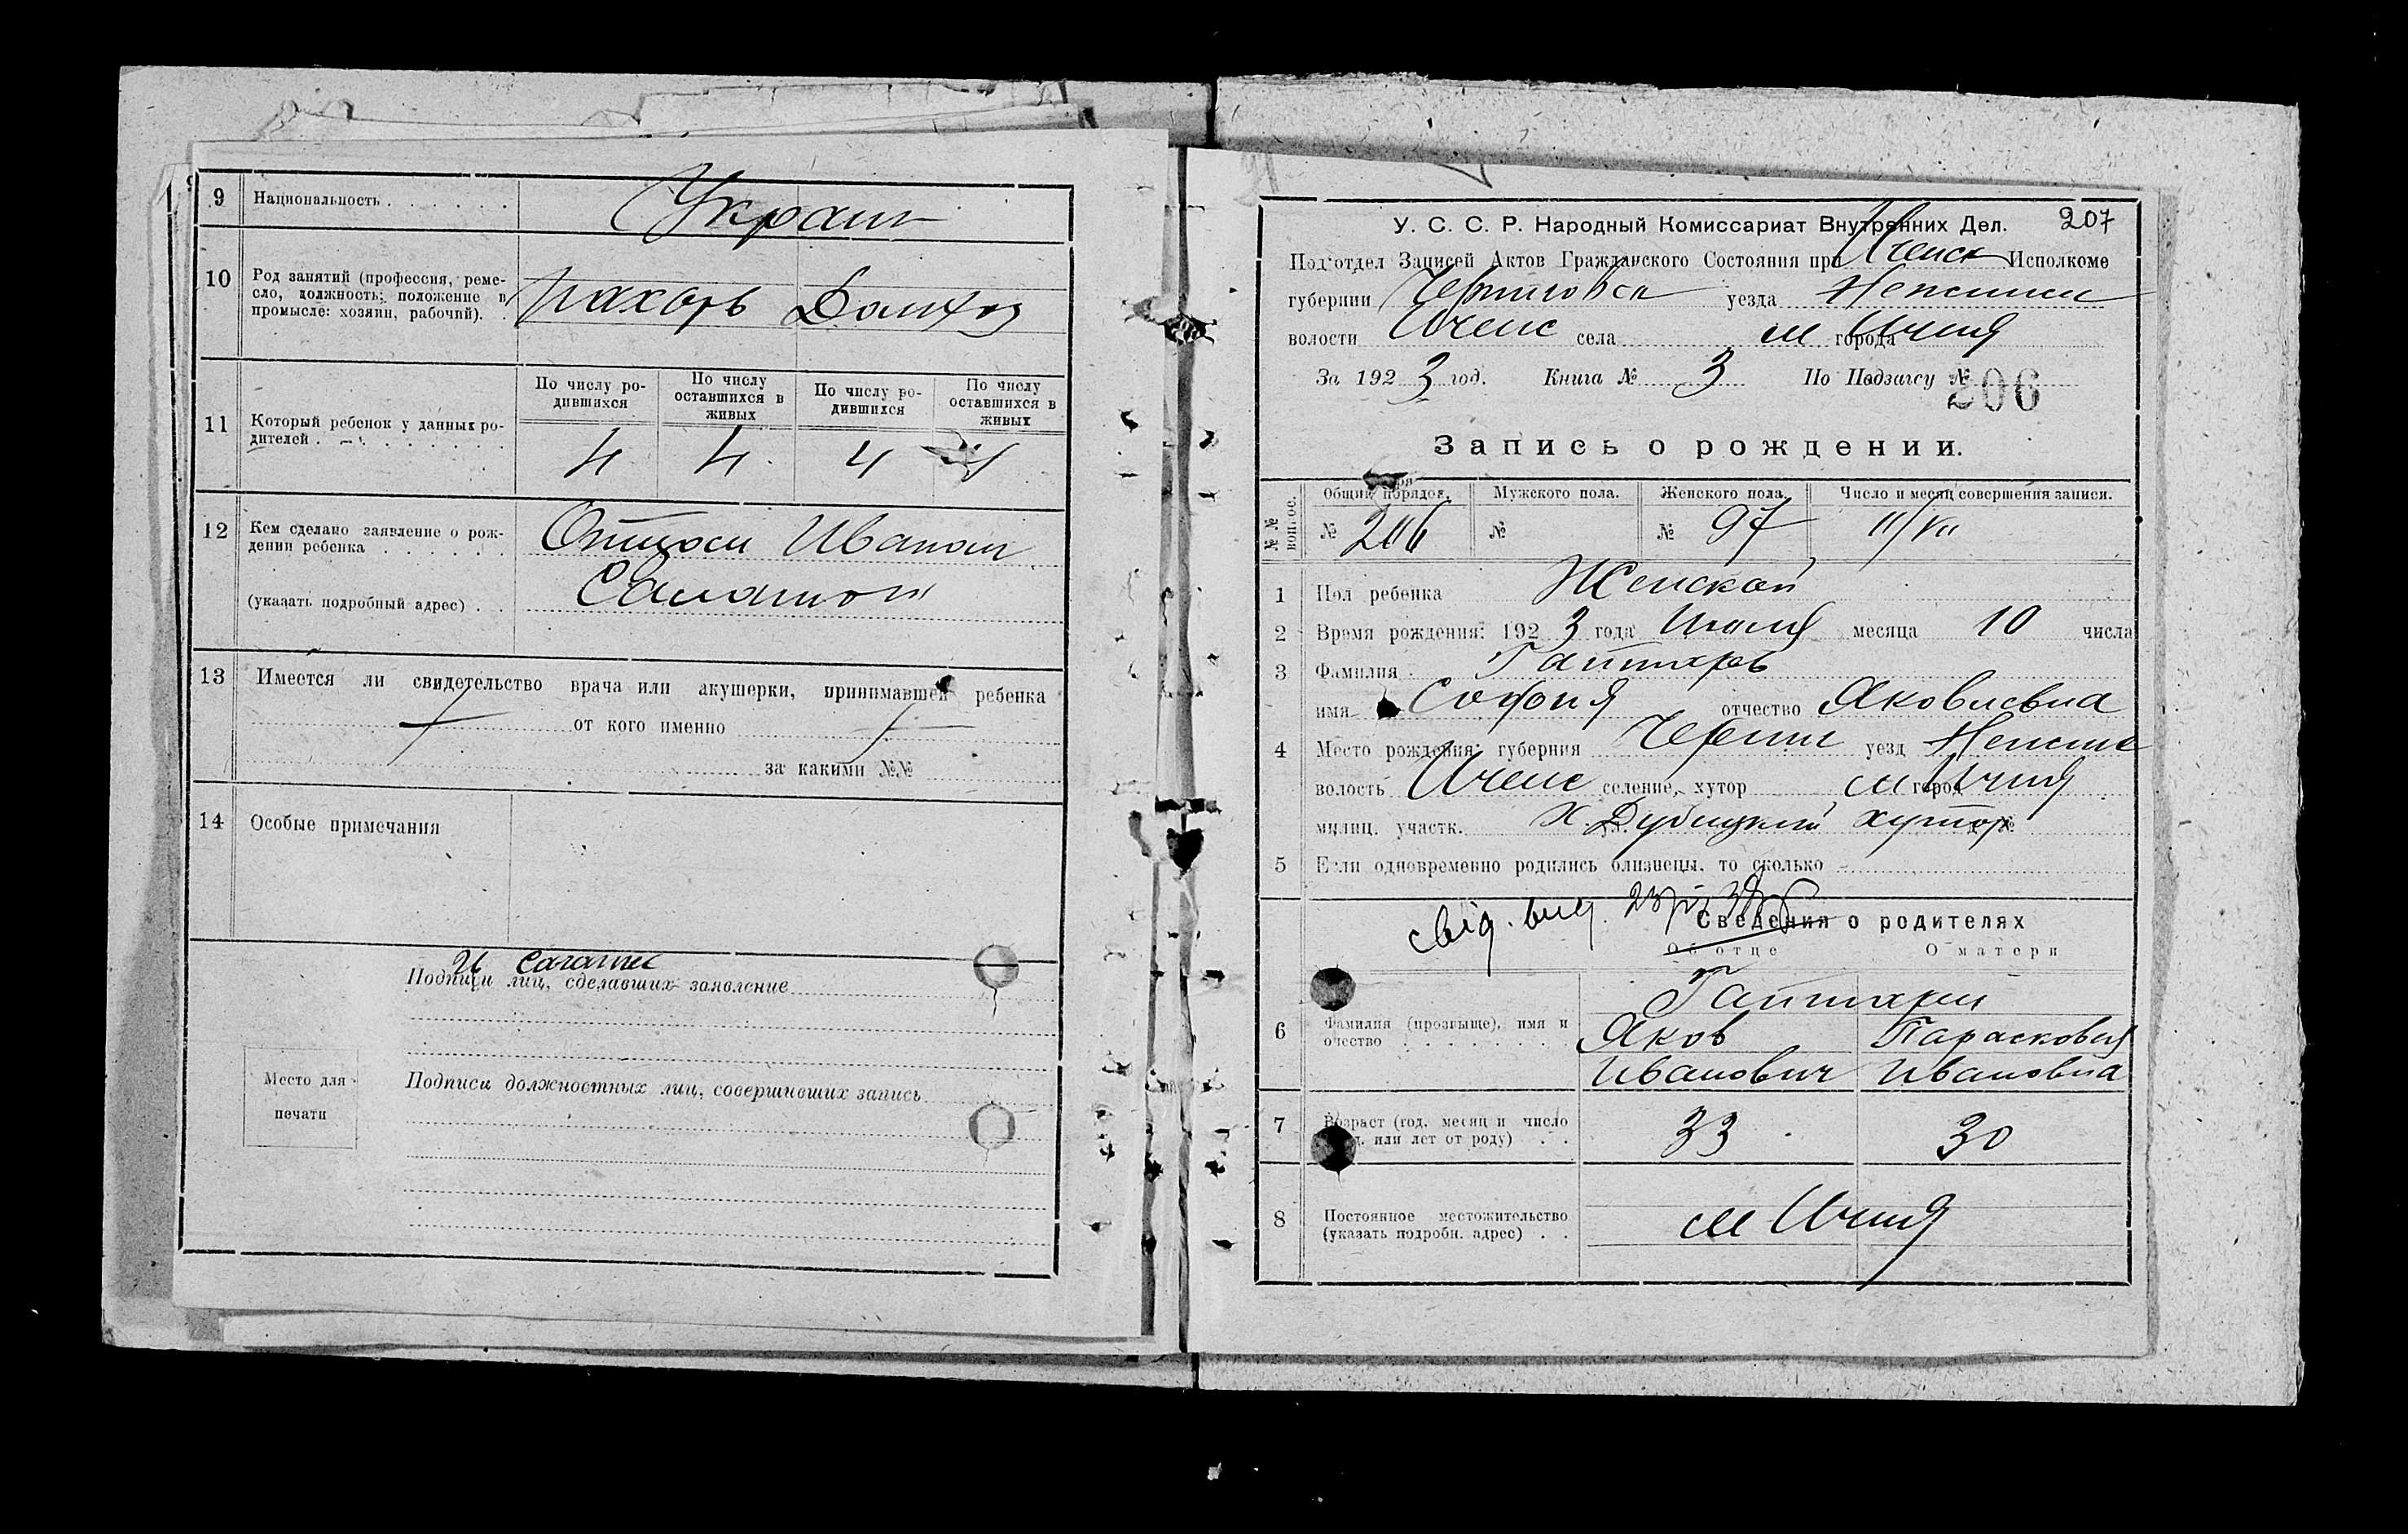 9 Национальность . . . . . . Украин
10 Род занятий (профессия, реме-
сло, должность; положение в
промысле: хозяин, рабочий). . пахарь Домхоз
По числу ро-
дившихся
По числу
оставшихся в
живых
По числу ро-
дившихся
По числу
оставшихся в
живых
11 Который ребенок у данных ро-
дителей . 4 4 4 4
12 Кем сделано заявление о рож-
дении ребенка . . . . . . Отцом Иваном
(указать подробный адрес) . .
13 Имеется ли свидетельство врача или акушерки, принимавшей ребенка
от кого именно
за какими №№
14 Особые примечания
Подписи лиц, сделавших заявление
Место для
печати
Подписи должностных лиц, совершивших запись
207
У. С. С. Р. Народный Комиссариат Внутренних Дел.
Подотдел Записей Актов Гражданского Состояния при Иченск Исполкоме
губернии Черниговск уезда Нежинск
волости Иченс села м города Ичня
За 192 3 год. Книга № 3 По Подзагсу № 206
Запись о рождении.
№№ вопрос.
Общий порядов. Мужского пола. Женского пола. Число и месяц совершения записи.
№ 206 № № 97 11/VII
1 Пол ребенка Женской
2 Время рождения: 192 3 года Июля месяца 10 числа
3 Фамилия
имя София отчество Яковлевна
4 Место рождения: губерния Черниг уезд Нежинс
волость Иченс селение, хутор м город Ичня
милиц. участк. Х. ул. Дубицкий хутор №
5 Если одновременно родились близнецы, то сколько –
свід. вид.
Сведения о родителях
Об отце О матери
6 Фамилия (прозвыще), имя и
очество . . . . . . . .
Яков Парасковия
Иванович Ивановна
7 Возраст (год, месяц и число
или лет от роду) . . 33 30
8 Постоянное местожительство
(указать подробн. адрес) . . м Ичня